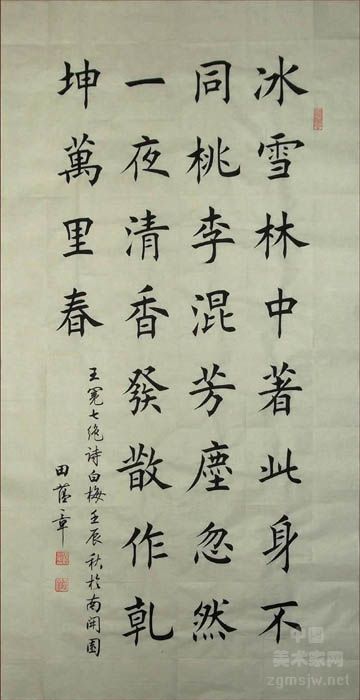 冰雪林中著此身不
同桃李混芳塵忽然
一夜清香發散作乾
坤萬里春
王冕七絕詩白梅壬辰秋於南開園
田蘊章
中国
美术家网
zgmsjw.net